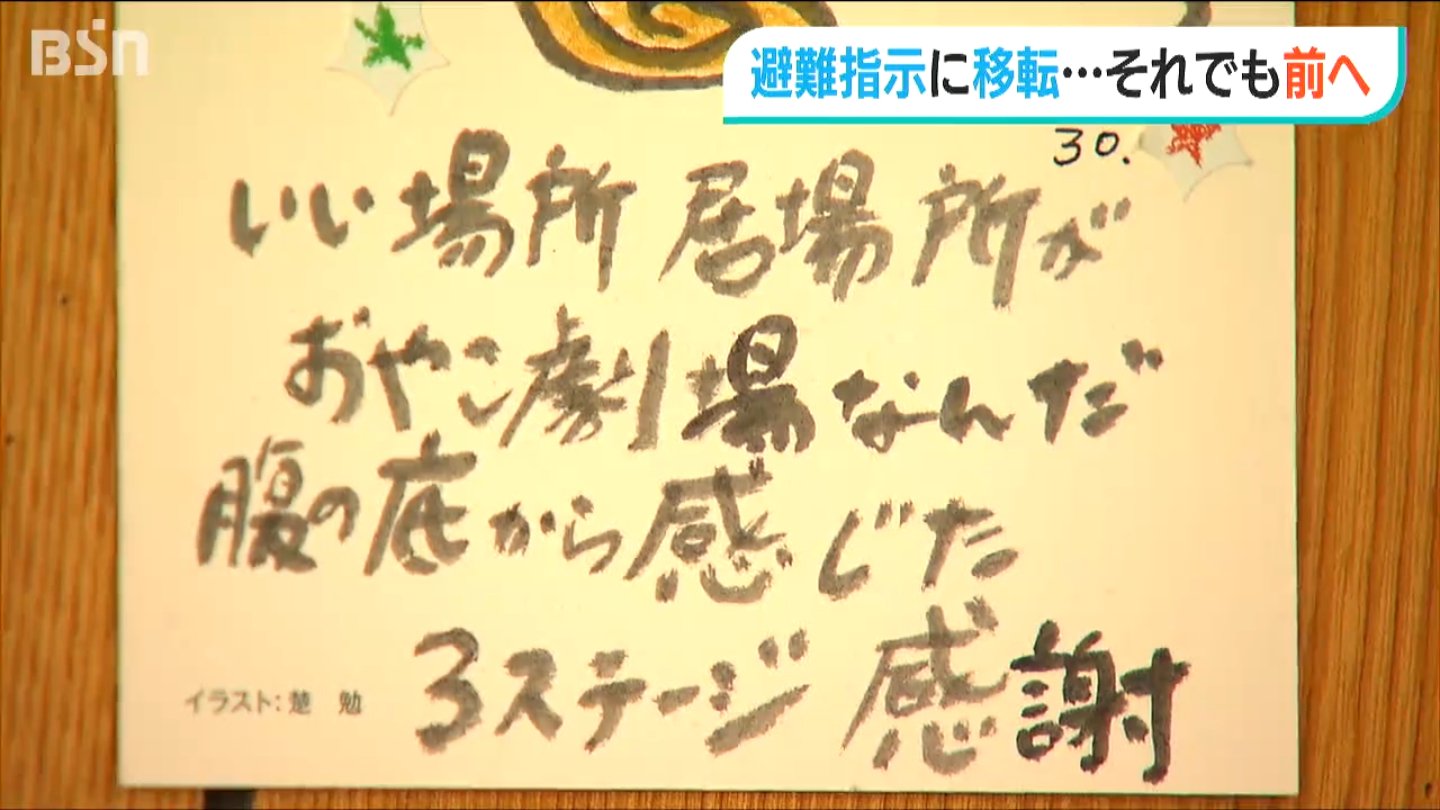 BSN
避難指示に移転…それでも前へ
30.
いい場所 居場所が
おやこ劇場なんだ
腹の底から感じた
3ステージ 感謝
イラスト:楚 勉